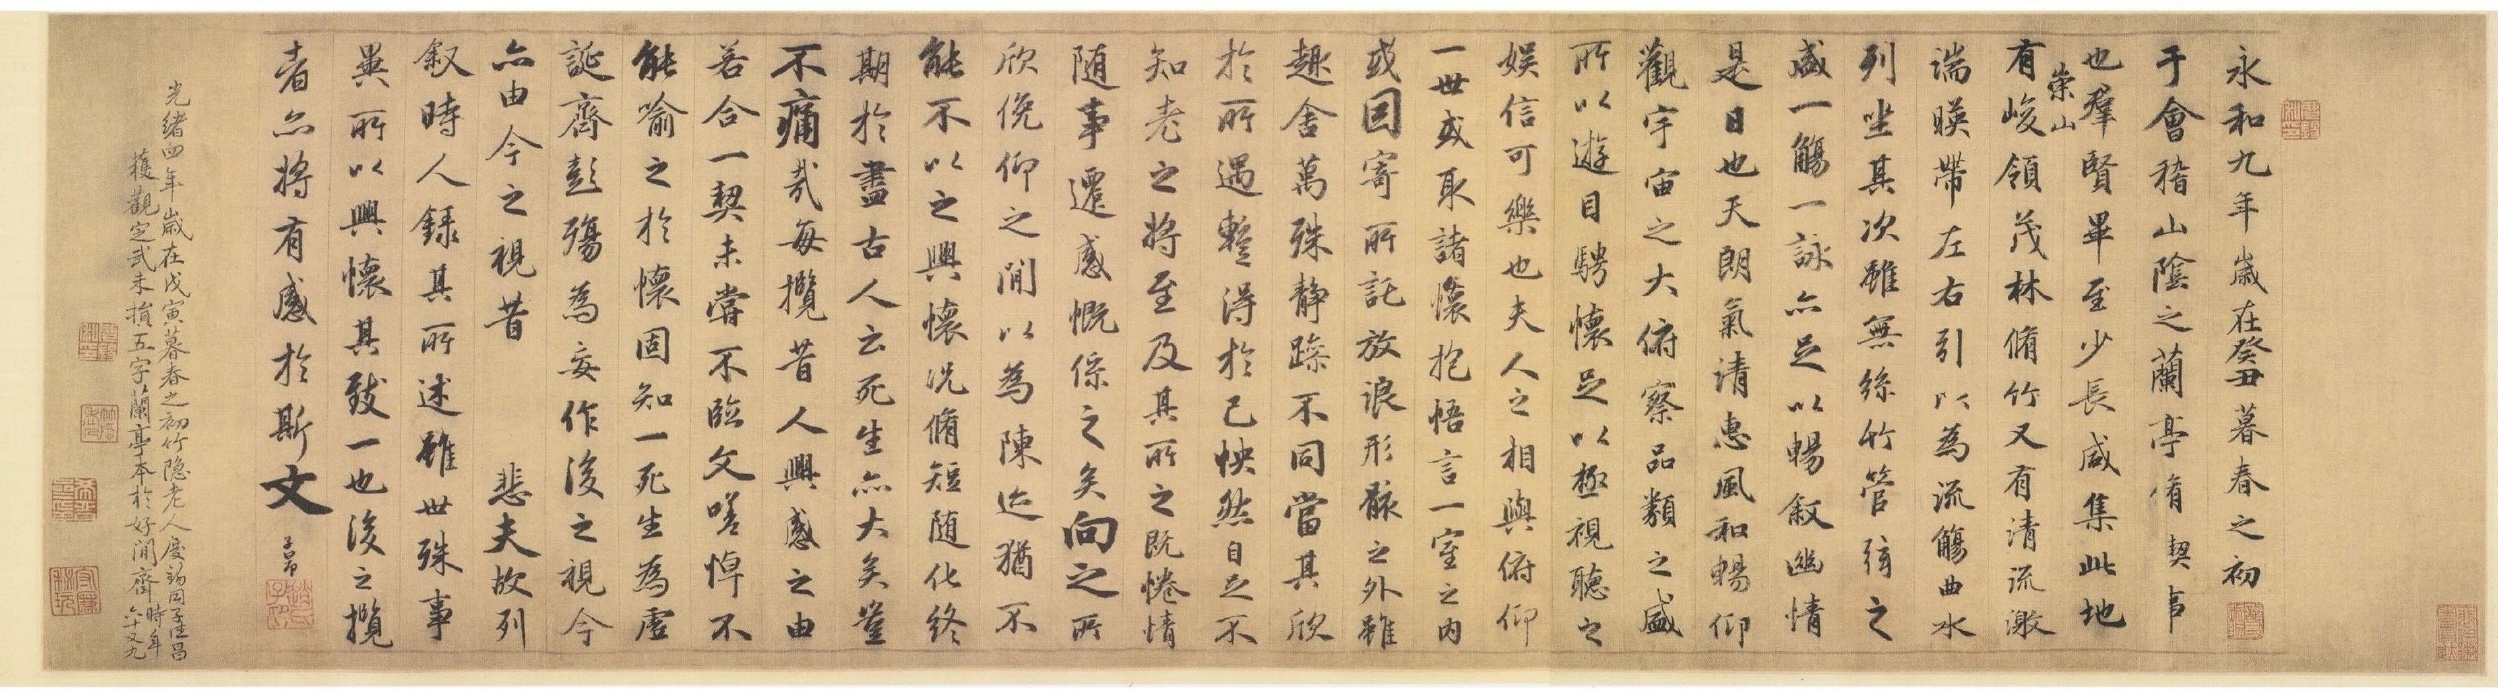 永和九年歲在癸丑暮春之初
于會稽山陰之蘭亭脩禊事
也羣賢畢至少長咸集此地
崇山
有峻領茂林脩竹又有清流激
湍暎帶左右引以為流觴曲水
列坐其次雖無絲竹管弦之
盛一觴一詠亦足以暢叙幽情
是日也天朗氣清惠風和暢仰
觀宇宙之大俯察品類之盛
所以遊目騁懷足以極視聽之
娛信可樂也夫人之相與俯仰
一世或取諸懷抱悟言一室之內
或因寄所託放浪形骸之外雖
趣舍萬殊靜躁不同當其欣
於所遇暫得於己怏然自足不
知老之將至及其所之既惓情
隨事遷感慨係之矣向之所
欣俛仰之閒以為陳迹猶不
能不以之興懷況脩短隨化終
期於盡古人云死生亦大矣豈
不痛哉每攬昔人興感之由
若合一契未嘗不臨文嗟悼不
能喻之於懷固知一死生為虛
誕齊彭殤為妄作後之視今
亦由今之視昔 悲夫故列
叙時人錄其所述雖世殊事
異所以興懷其致一也後之攬
者亦將有感於斯文
子昂
光緒四年歲在戊寅暮春之初竹隱老人度同子昌
獲觀定武未損五字蘭亭本於好閒齋時年
六十又九